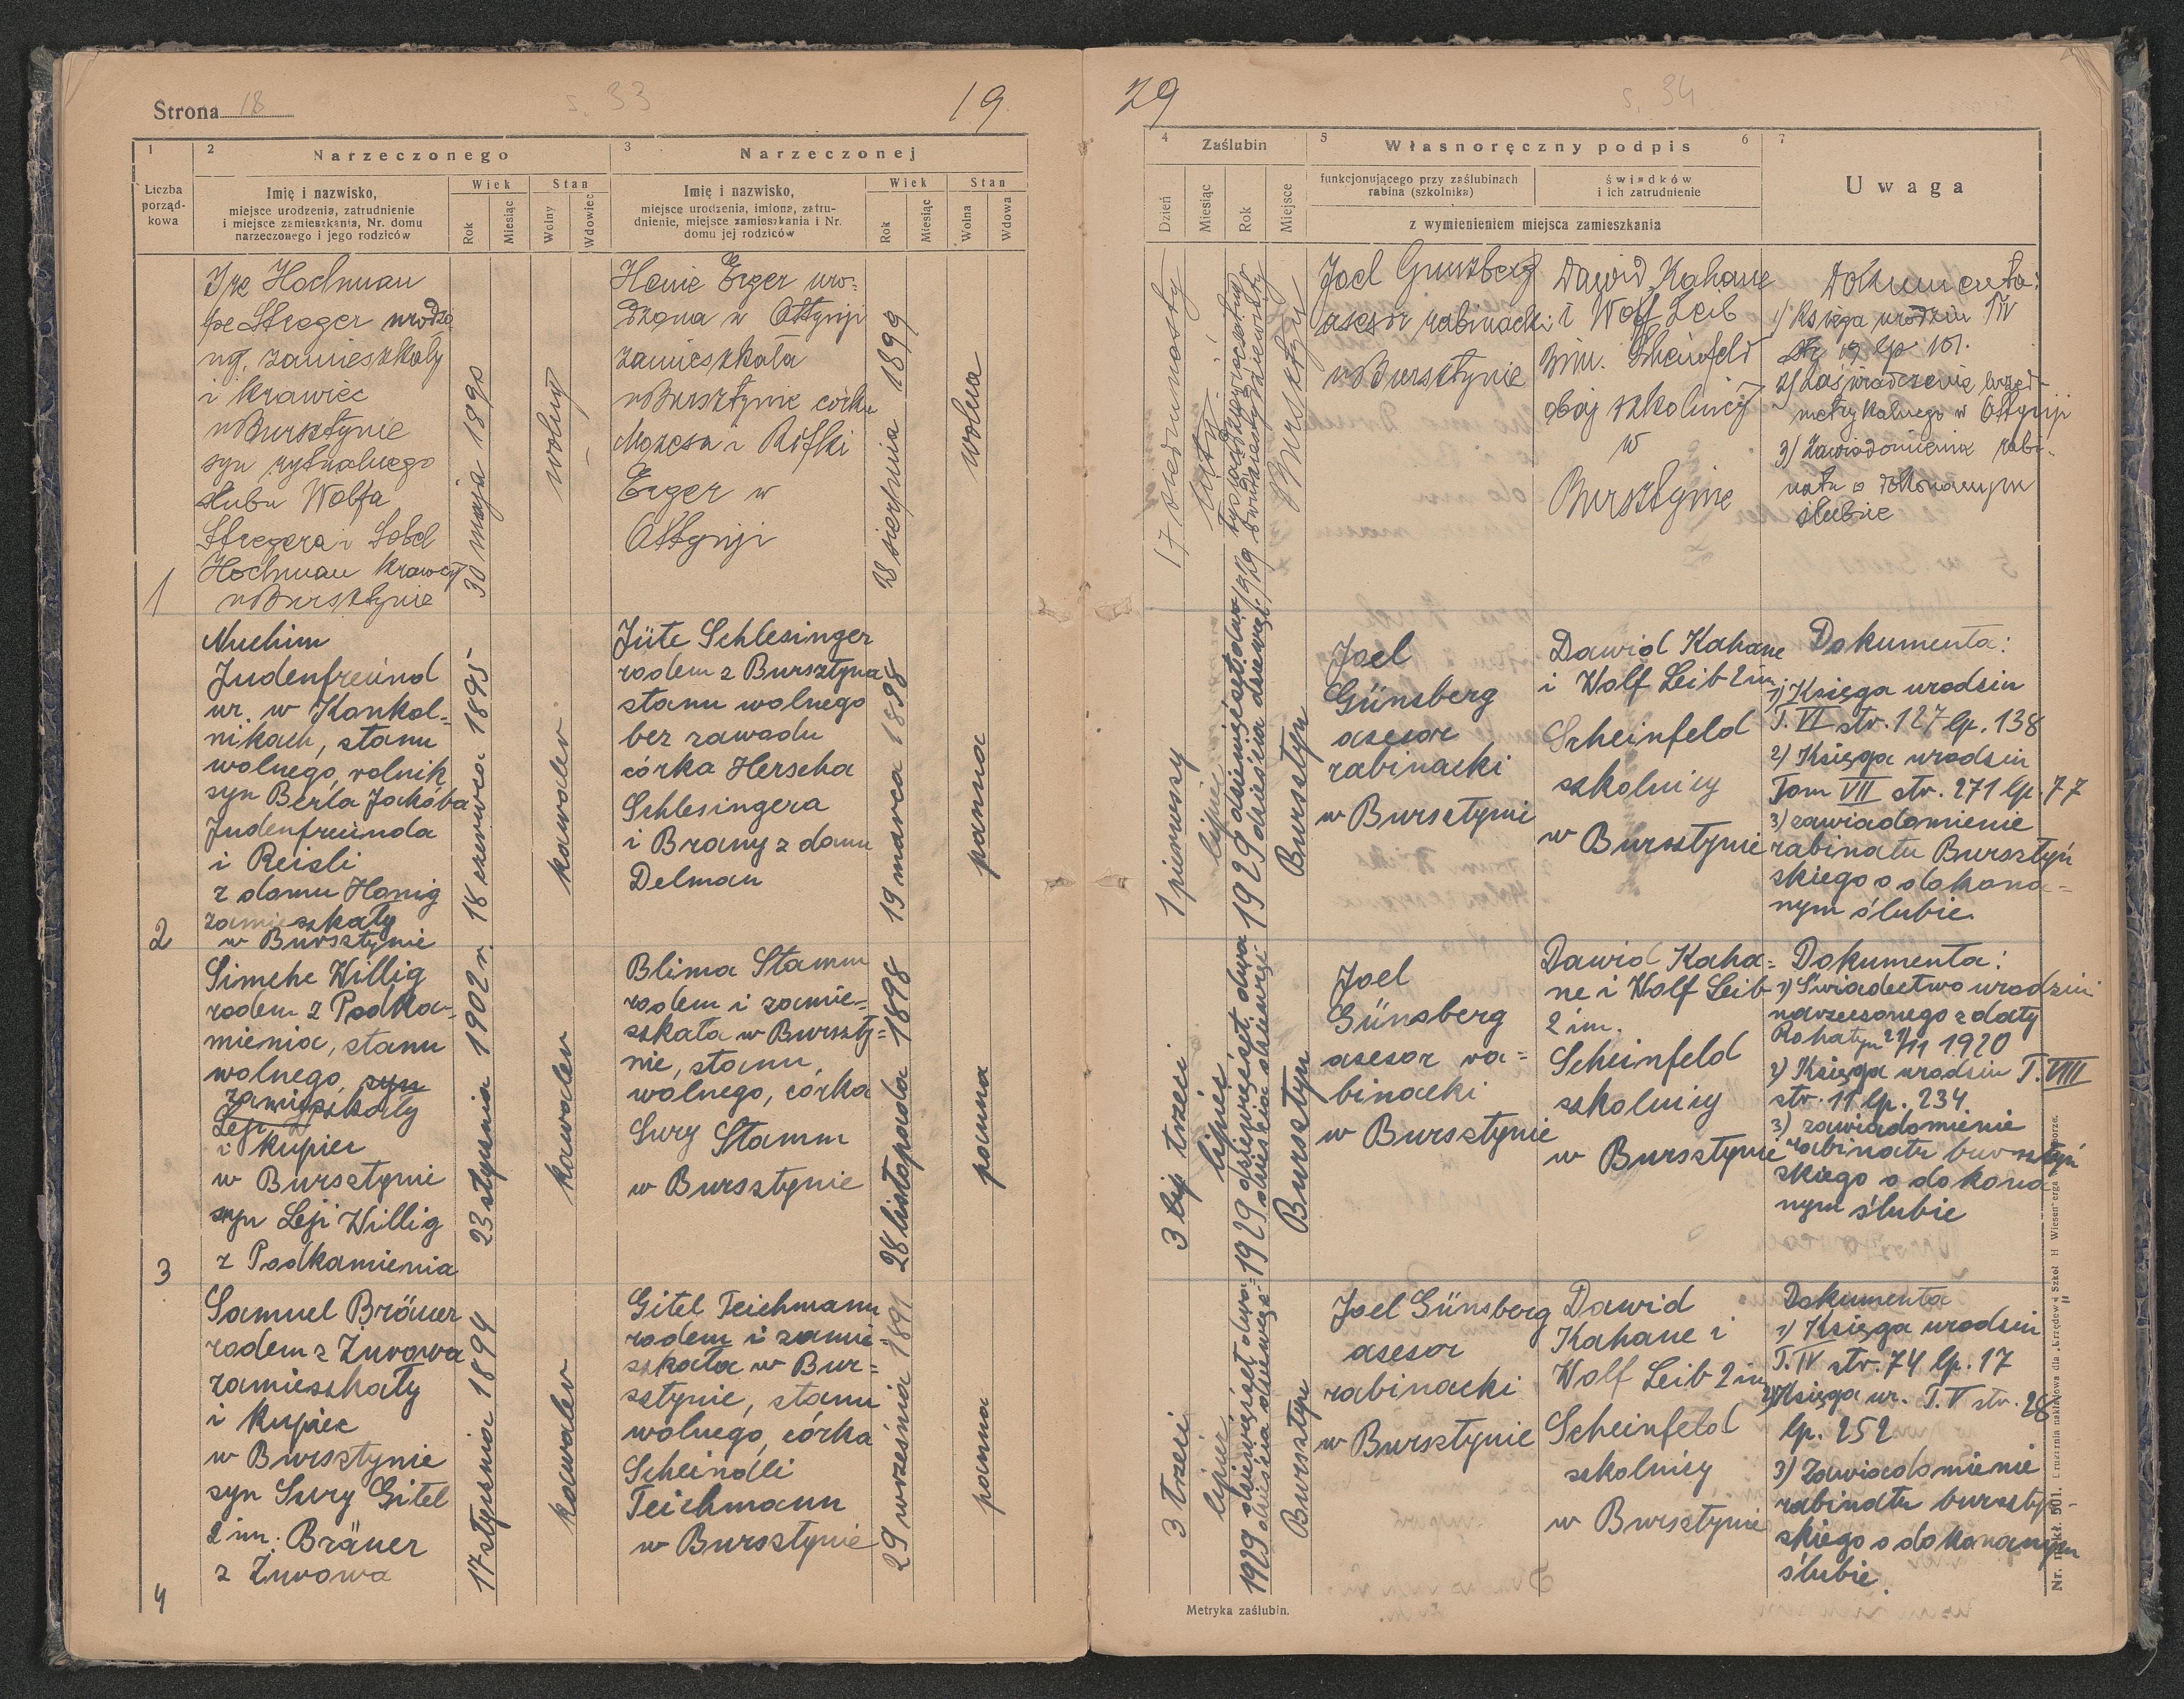 Strona 18
s. 33
19
1
2
Narzeczonego
3
Narzeczonej
Liczba
porząd-
kowa
Imię i nazwisko,
miejsce urodzenia, zatrudnienie
i miejsce zamieszkania, Nr. domu
narzeczonego i jego rodziców
Wiek
Rok
Miesiąc
Stan
Wolny
Wdowiec
Imię i nazwisko,
miejsce urodzenia, imiona, zatru-
dnienie, miejsce zamieszkania i Nr.
domu jej rodziców
Wiek
Rok
Miesiąc
Stan
Wolna
Wdowa
1
Hochman
Streger urodzo
ny, zamieszkały
i krawiec
w Bursztynie
syn rytualnego
ślubu Wolfa
Stregera i Sobel
Hochman krawcy
w Bursztynie
30 maja
wolny
Henie Erger uro-
dzona w Ottynji
zamieszkała
w Bursztynie córka
Mozesa i Rifki
Erger w
Ottynji
28 sierpnia 1899
wolna
2
Nuchim
Judenfreund
ur. w Konkol-
nikach, stanu
wolnego, rolnik
syn Berla Jakóba
Judenfreunda
i Reisli
z domu Honig
zamieszkały
w Bursztynie
18 czerwca 1895
kawaler
Jüte Schlesinger
rodem z Bursztyna
stanu wolnego
bez zawodu
córka Herscha
Schlesingera
i Brany z domu
Delman
19 marca 1898
panna
3
Simche Willig
rodem z Podka-
mienia, stanu
wolnego, syn
zamieszkały
Leji
i kupiec
w Bursztynie
syn Leji Willig
z Podkamienia
23 stycznia 1902 r.
kawaler
Blima Stamm
rodem i zamie-
szkała w Burszty-
nie, stanu
wolnego, córka
Sury Stamm
w Bursztynie
28 listopada 1898
panna
4
Samuel Bräuer
rodem z Żurowa
zamieszkały
i kupiec
w Bursztynie
syn Sury Gitel
2 im. Bräuer
z Żurowa
17 stycznia 1894
kawaler
Gitel Teichmann
rodem i zamie-
szkała w Bur-
sztynie, stanu
wolnego, córka
Scheindli
Teichmann
w Bursztynie
29 września 1891
panna
29
s. 34
4
Zaślubin
5
Własnoręczny podpis
6
7
Dzień
Miesiąc
Rok
Miejsce
funkcjonującego przy zaślubinach
rabina (szkolnika)
świadków
i ich zatrudnienie
z wymienieniem miejsca zamieszkania
Uwaga
17 siedmnasty
luty
1929 tysiąc dziewięćset
dwadzieścia dziewięć
Bursztyn
Joel Günzberg
asesor rabinacki
w Bursztynie
Dawid Kahane
i Wolf Leib
2im. Scheinfeld
obaj szkolnicy
w
Bursztynie
Dokumenta:
1) Ksiega urodzin IV
str 19 lp 101.
2) Zaświadczenie urzęd
metrykalnego w Ottynji
3) Zawiadomienie rabi-
natu o dokonanym
ślubie
1 pierwszy
lipiec
1929 dziewięćset dwa
dzieścia dziewięć
Bursztyn
Joel
Günsberg
asesor
rabinacki
w Bursztynie
Dawid Kahane
i Wolf Leib 2 im.
Scheinfeld
szkolnicy
w Bursztynie
Dokumenta:
1) Księga urodzin
T. VI str. 127 lp. 138
2) Księga urodzin
Tom VII str. 271 lp. 77
3) zawiadomienie
rabinatu Bursztyń
skiego o dokona-
nym ślubie.
3 lip trzeci
lipiec
1929 dziewięćset dwa
dzieścia dziewięć
Bursztyn
Joel
Günsberg
asesor ra-
binacki
w Bursztynie
Dawid Kaha-
ne i Wolf Leib
2 im.
Scheinfeld
szkolnicy
w Bursztynie
Dokumenta:
1) Świadectwo urodzin
narzeczonego z daty
Rohatyn 21/11 1920
2) Księga urodzin T. VIII
str. 11 lp. 234
3) zawiadomienie
rabinatu bursztyń
skiego o dokona
nym ślubie
3 trzeci
lipiec
1929 dziewięćset dwa-
dzieścia dziewięć
Bursztyn
Joel Günsberg
asesor
rabinacki
w Bursztynie
Dawid
Kahane i
Wolf Leib 2 im
Scheinfeld
szkolnicy
w Bursztynie
Dokumenta
1) Księga urodzin
T. IV str. 74 lp. 17
2) Księga ur. T. V str. 28
lp. 252
3) Zawiadomienie
rabinatu burszty-
skiego o dokonanym
ślubie.
Metryka zaślubin.